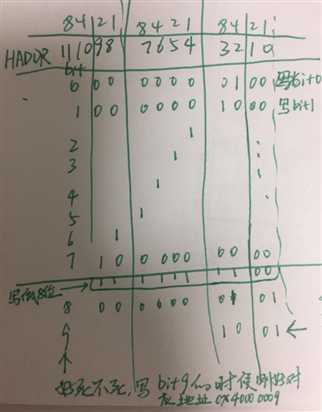 8 4 2 1 8 4 2 1 8 4 2 1
HADDR 11 10 9 8 7 6 5 4 3 2 1 0
bit
0 0 0 0 0 0 0 0 1 0 0 写bit0
1 0 0 0 0 0 0 1 0 0 0 写bit1
2 1
3 1
4 1
5 1
6 1
7 1 0 0 0 0 0 0 0 0 0
写低8位 1 1 1 1 1 1 1 1 0 0
8 0 0 0 0 0 0 0 1 0 1
9 1 0 0 1 ←
好死不死,写bit9的时候刚好对
应地址0x40000009